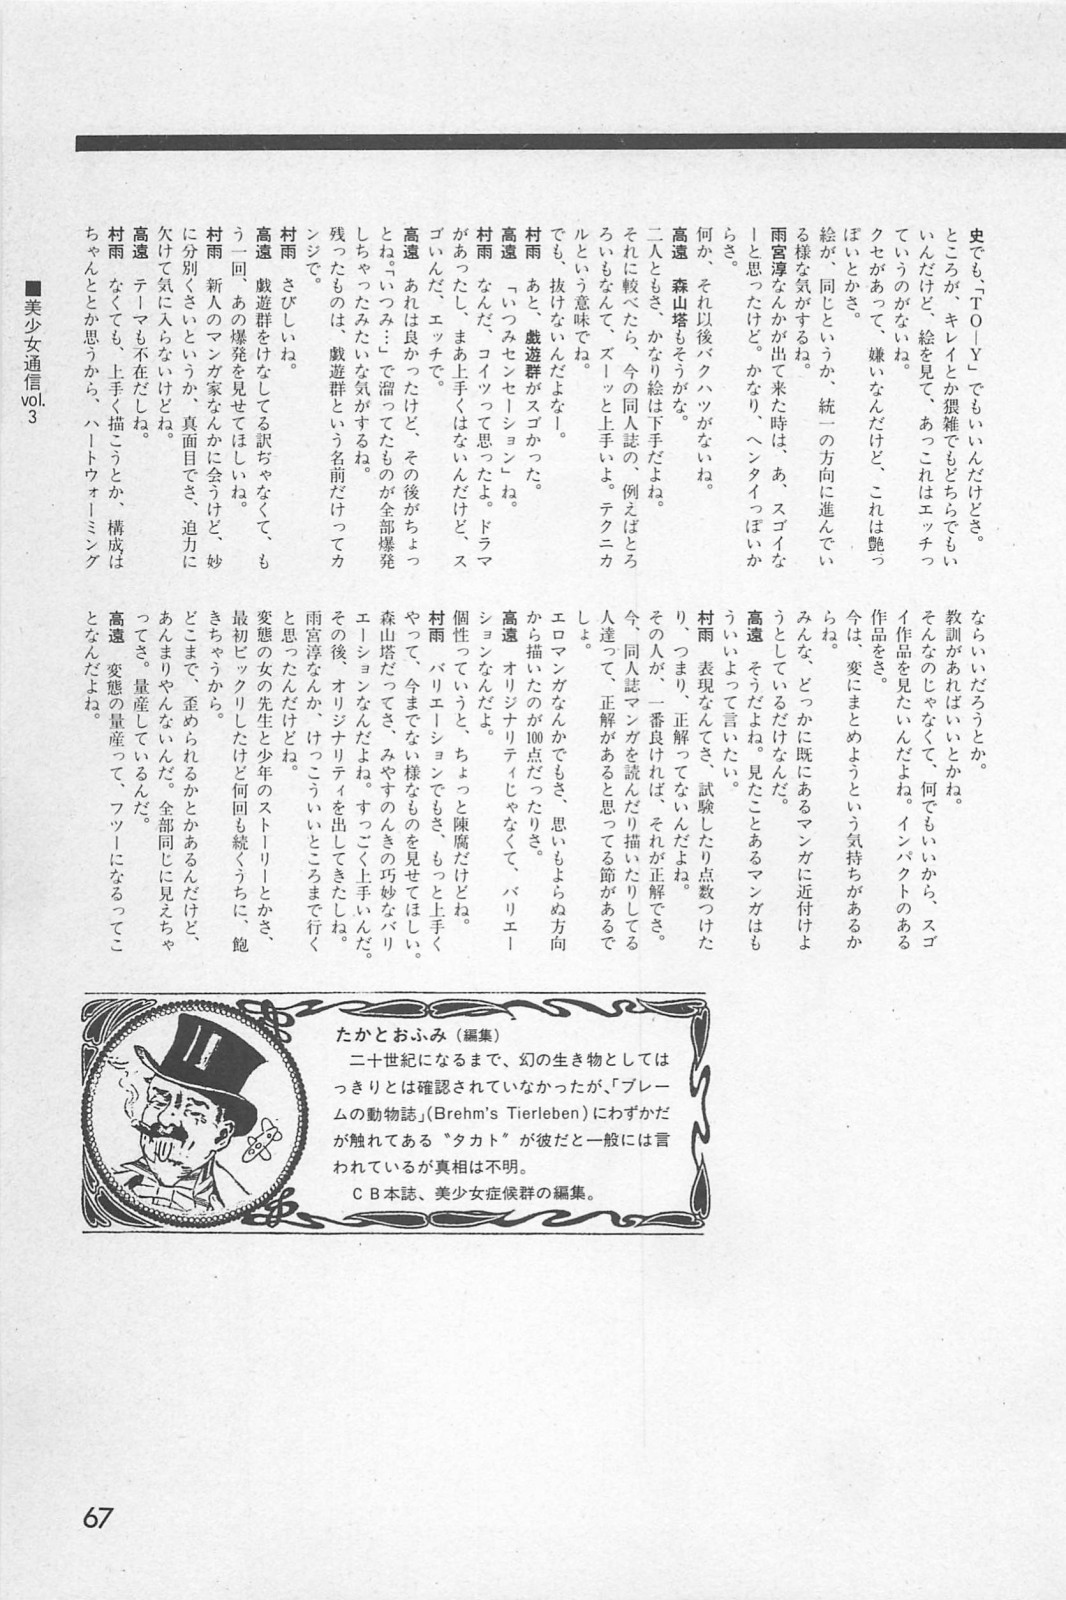 史でも、「TO―Y」でもいいんだけどさ。
ところが、キレイとか猥雑でもどちらでもい
いんだけど、絵を見て、あっこれはエッチっ
ていうのがないね。
クセがあって、嫌いなんだけど、これは艶っ
ぽいとかさ。
絵が、同じというか、統一の方向に進んでい
る様な気がするね。
雨宮淳なんかが出て来た時は、あ、スゴイな
ーと思ったけど。かなり、ヘンタイっぽいか
らさ。
何か、それ以後バクハツがないね。
高遠　森山塔もそうがな。
二人ともさ、かなり絵は下手だよね。
それに較べたら、今の同人誌の、例えばとろ
ろいもなんて、ズーッと上手いよ。テクニカ
ルという意味でね。
でも、抜けないんだよなー。
村雨　あと、戯遊群がスゴかった。
高遠　「いつみセンセーション」ね。
村雨　なんだ、コイツって思ったよ。ドラマ
があったし、まあ上手くはないんだけど、ス
ゴいんだ、エッチで。
高遠　あれは良かったけど、その後がちょっ
とね。「いつみ…」で溜ってたものが全部爆発
しちゃったみたいな気がするね。
残ったものは、戯遊群という名前だけってカ
ンジで。
村雨　さびしいね。
高遠　戯遊群をけなしてる訳ぢゃなくて、も
う一回、あの爆発を見せてほしいね。
村雨　新人のマンガ家なんかに会うけど、妙
に分別くさいというか、真面目でさ、迫力に
欠けて気に入らないけどね。
高遠　テーマも不在だしね。
村雨　なくても、上手く描こうとか、構成は
ちゃんととか思うから、ハートウォーミング
ならいいだろうとか。
教訓があればいいとかね。
そんなのじゃなくて、何でもいいから、スゴ
イ作品を見たいんだよね。インパクトのある
作品をさ。
今は、変にまとめようという気持ちがあるか
らね。
みんな、どっかに既にあるマンガに近付けよ
うとしているだけなんだ。
高遠　そうだよね。見たことあるマンガはも
ういいよって言いたい。
村雨　表現なんてさ、試験したり点数つけた
り、つまり、正解ってないんだよね。
その人が、一番良ければ、それが正解でさ。
今、同人誌マンガを読んだり描いたりしてる
人達って、正解があると思ってる節があるで
しょ。
エロマンガなんかでもさ、思いもよらぬ方向
から描いたのが100点だったりさ。
高遠　オリジナリティじゃなくて、バリエー
ションなんだよ。
個性っていうと、ちょっと陳腐だけどね。
村雨　バリエーションでもさ、もっと上手く
やって、今までない様なものを見せてほしい。
森山塔だってさ、みやすのんきの巧妙なバリ
エーションなんだよね。すっごく上手いんだ。
その後、オリジナリティを出してきたしね。
雨宮淳なんか、けっこういいところまで行く
と思ったんだけどね。
変態の女の先生と少年のストーリーとかさ、
最初ビックリしたけど何回も続くうちに、飽
きちゃうから。
どこまで、歪められるかとかあるんだけど、
あんまりやんないんだ。全部同じに見えちゃ
ってさ。量産しているんだ。
高遠　変態の量産って、フツーになるってこ
となんだよね。
たかとおふみ（編集）
　二十世紀になるまで、幻の生き物としては
っきりとは確認されていなかったが、「ブレー
ムの動物誌」(Brehm's Tierleben)にわずかだ
が触れてある〝タカト〟が彼だと一般には言
われているが真相は不明。
　CB本誌、美少女症候群の編集。
■美少女通信vol.3
67